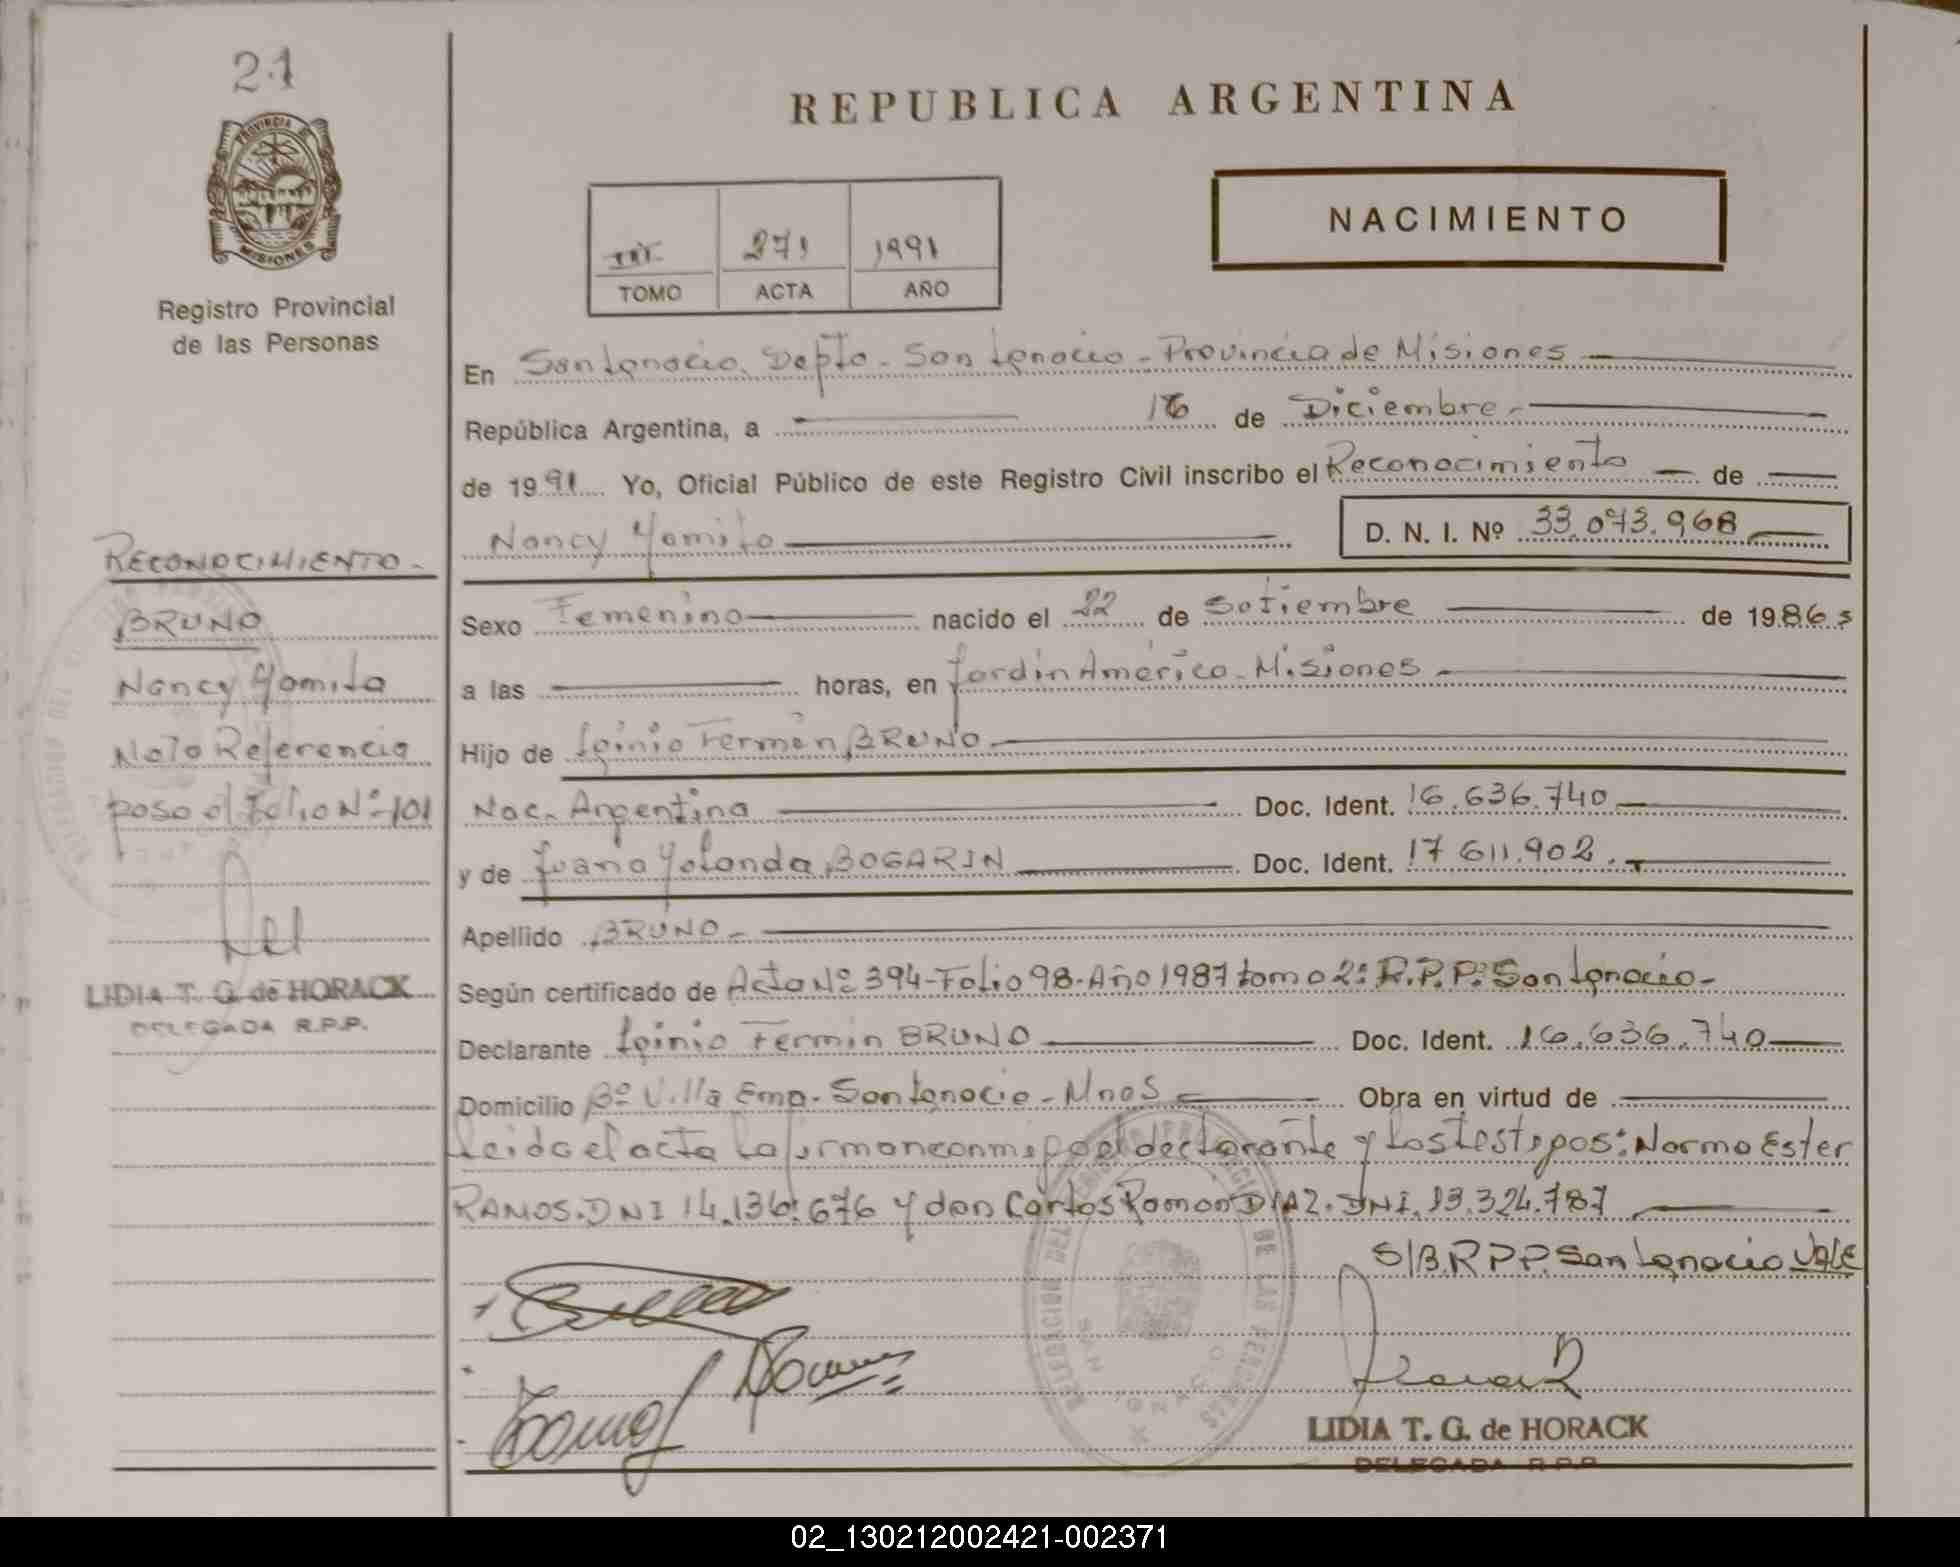 21
PROVINCIA DE
MISIONES
Registro Provincial
de las Personas
REPUBLICA ARGENTINA
NACIMIENTO
III 271 1991
TOMO ACTA AÑO
En San Ignacio. Depto. San Ignacio - Provincia de Misiones
República Argentina, a 16 de Diciembre.
de 1991 Yo, Oficial Público de este Registro Civil inscribo el Reconocimiento de
Nancy Yamila D. N. I. Nº 33.073.968
Sexo Femenino nacido el 22 de Setiembre de 1986
a las horas, en Jardin América - Misiones
Hijo de Iginio Fermin BRUNO
Nac. Argentina Doc. Ident. 16.636.740
y de Juana Yolanda BOGARIN Doc. Ident. 17 611.902.
Apellido BRUNO
Según certificado de Acta Nº 394 - Folio 98 - Año 1987 tomo 2º R.P.P. San Ignacio
Declarante Iginio Fermin BRUNO Doc. Ident. 16.636.740
Domicilio Bº Villa Emp. San Ignacio - Mnes Obra en virtud de
leida el acta la firman conmigo el declarante y los testigos: Norma Ester
RAMOS. DNI 14.136.676 y don Carlos Ramon DIAZ. DNI. 13.324.787
S/B.R.P.P. San Ignacio VALE
LIDIA T. G. de HORACK
DELEGADA R.P.P.
RECONOCIMIENTO
BRUNO
Nancy Yamila
Nota Referencia
paso al Folio Nº 101
LIDIA T. G. de HORACK
DELEGADA R.P.P.
DELEGACION DEL DE LAS PERSONAS
SAN IGNACIO
02_130212002421-002371